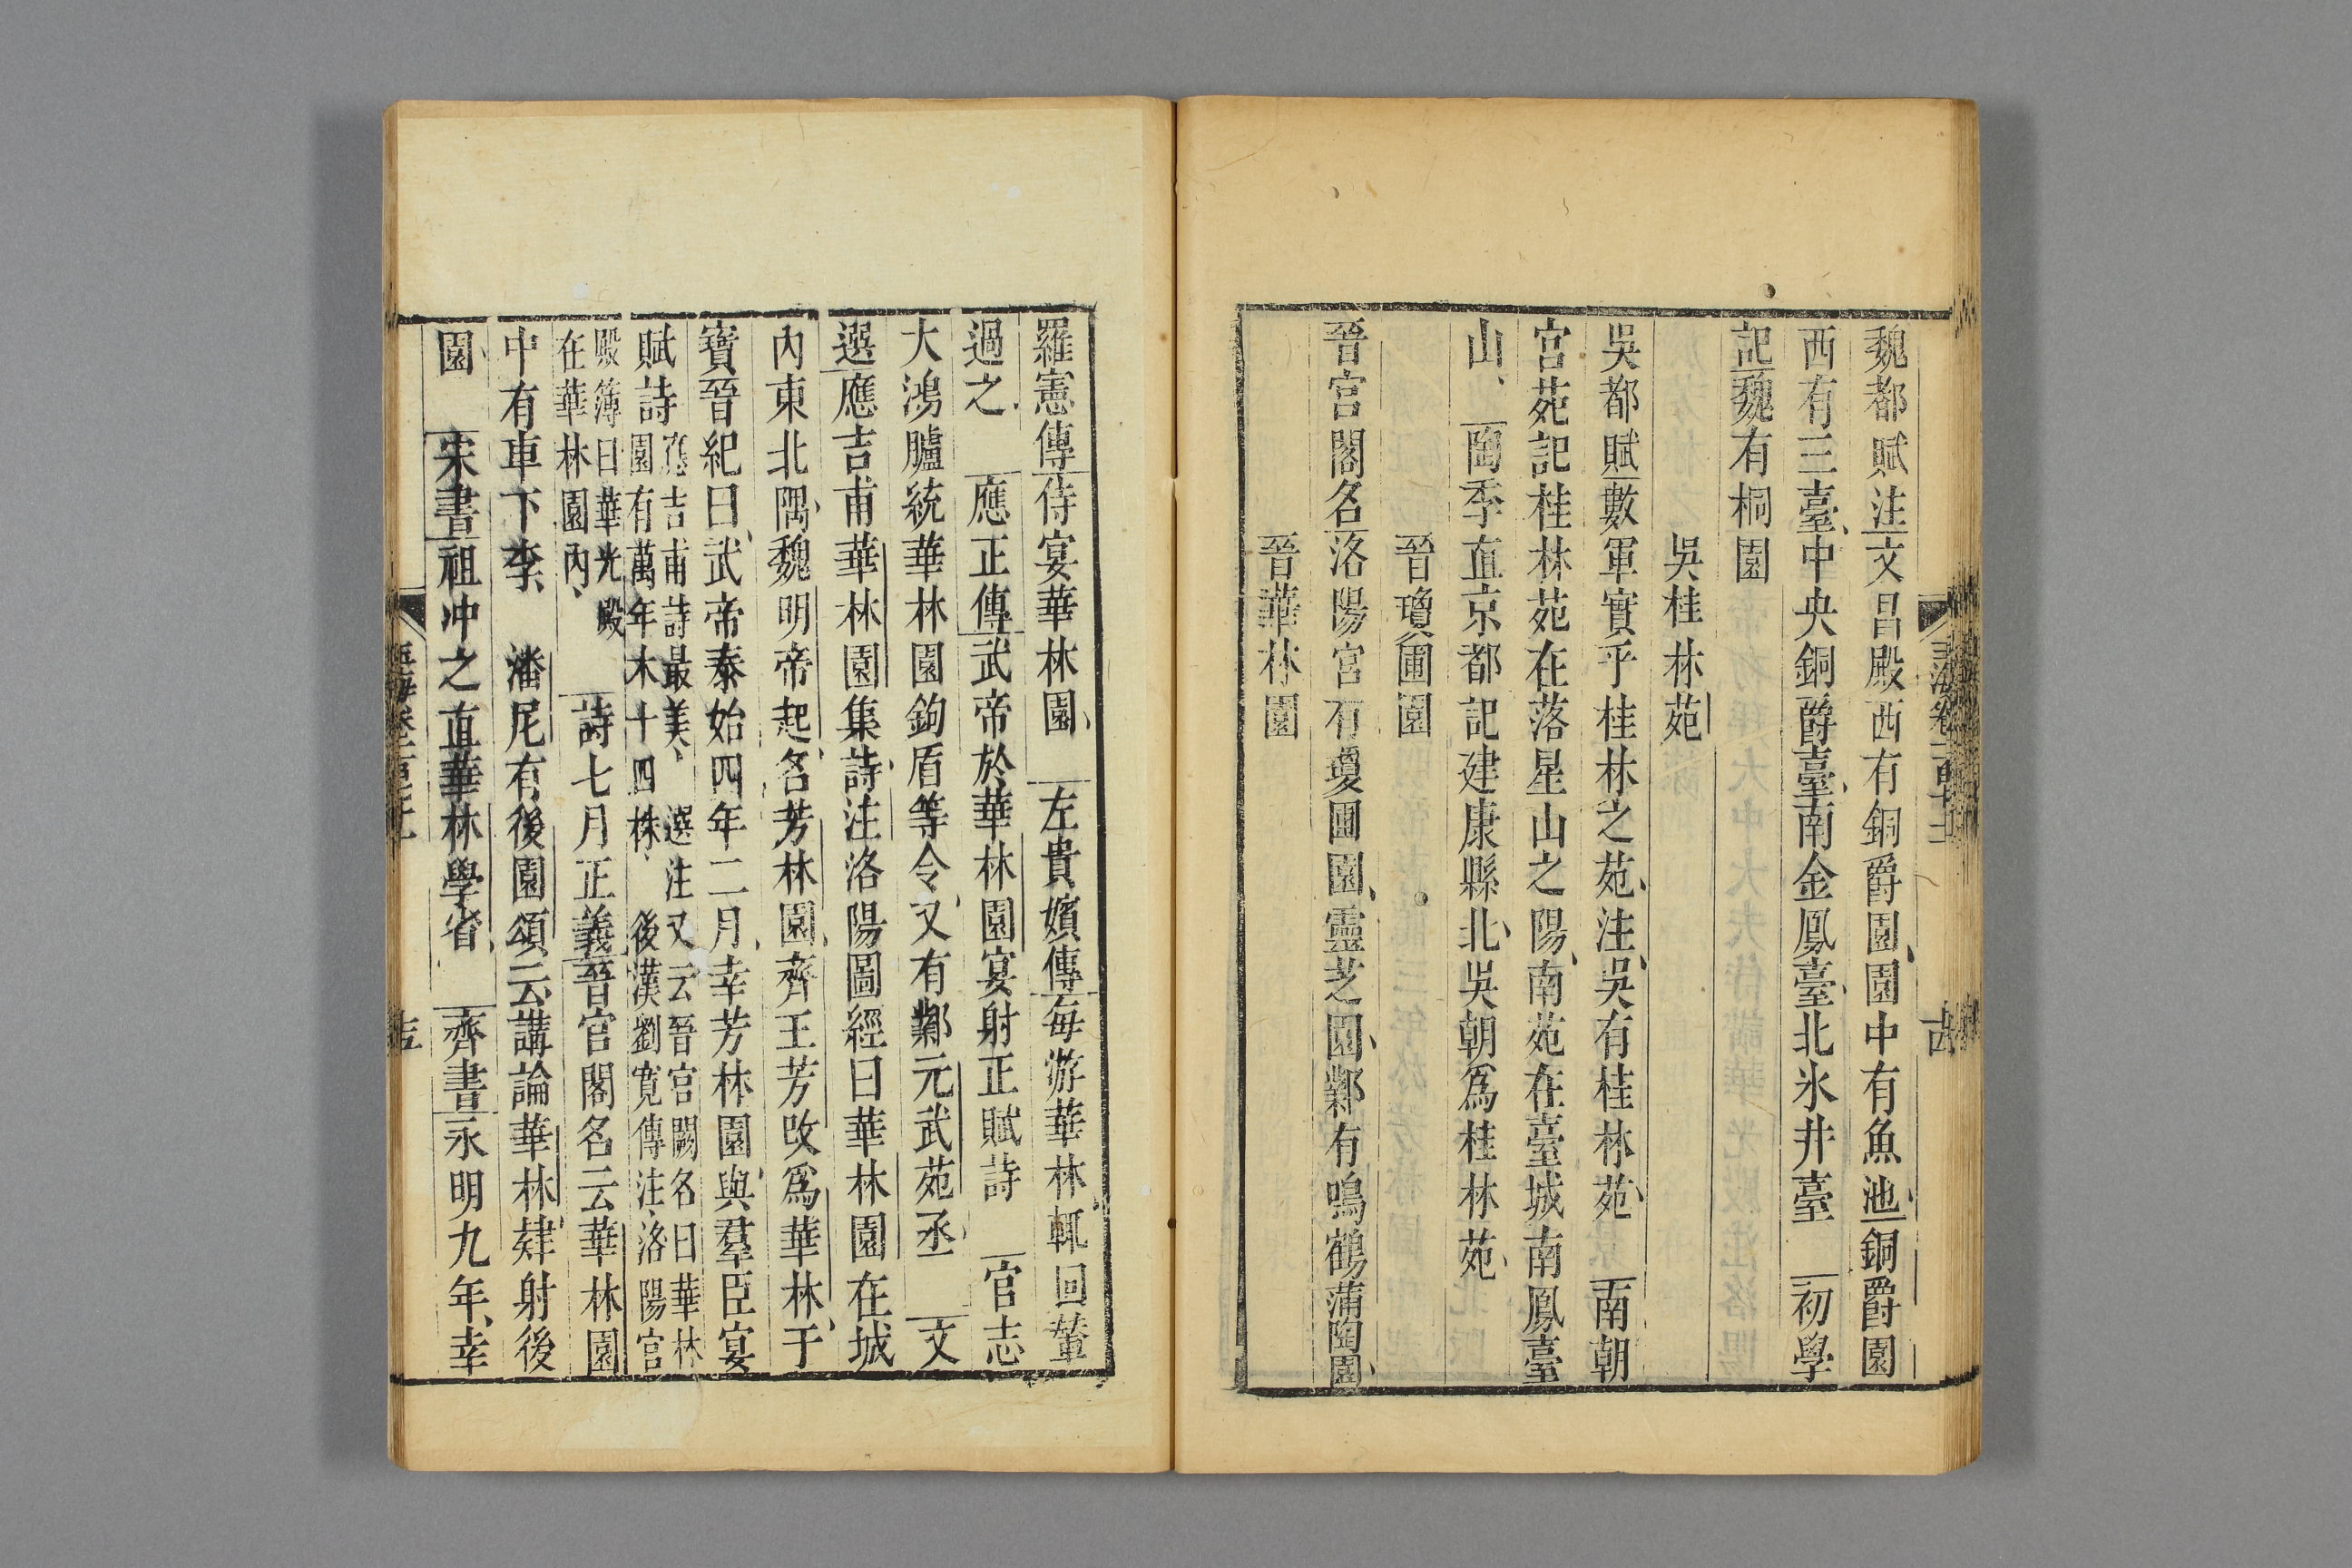 魏都賦注文昌殿西有銅爵園園中有魚池銅爵園
西有三臺中央銅爵臺南金鳳臺北氷井臺　初學
記魏有桐園
吳桂林苑
吳都賦數軍實乎桂林之苑注吳有桂林苑　南朝
宮苑記桂林苑在落星山之陽南苑在臺城南鳳臺
山　陶季直京都記建康縣北吳朝爲桂林苑
晉瓊圃園
晉宮閣名洛陽宮有瓊圃園靈芝園鄴有鳴鶴蒲陶園
晉華林園
羅憲傳侍宴華林園　左貴嬪傳每游華林輒回輦
過之　應正傳武帝於華林園宴射正賦詩　官志
大鴻臚統華林園鉤盾等令又有鄴元武苑丞　文
選應吉甫華林園集詩注洛陽圖經曰華林園在城
內東北隅魏明帝起名芳林園齊王芳改爲華林于
寶晉紀曰武帝泰始四年二月幸芳林園與羣臣宴
賦詩
應吉甫詩最美　選注又云晉宮闕名曰華林
園有萬年木十四株　後漢劉寬傳注洛陽宮
殿簿曰華光殿
在華林園內
詩七月正義晉宮閣名云華林園
中有車下李　潘尼有後園頌云講論華林肄射後
園　宋書祖冲之直華林學省　齊書永明九年幸